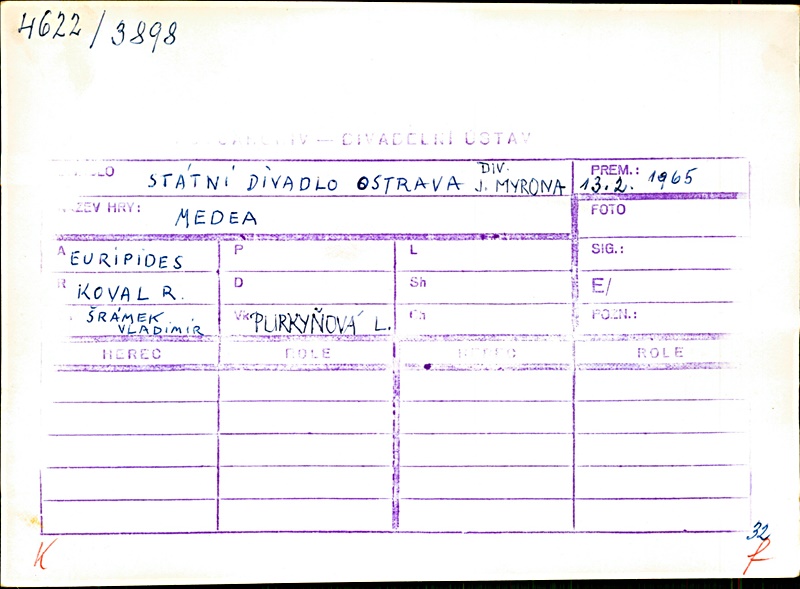 4622/3898
DIVADELNÍ ÚSTAV
STÁTNÍ DIVADLO OSTRAVA DIV. J. MYRONA PREM.: 13.2. 1965
NÁZEV HRY: MEDEA FOTO
A EURIPIDES P L SIG.:
R KOVAL R. D Sh E/
ŠRÁMEK VLADIMÍR Vk PURKYŇOVÁ L. Ch POZN.:
HEREC ROLE HEREC ROLE
32
K f